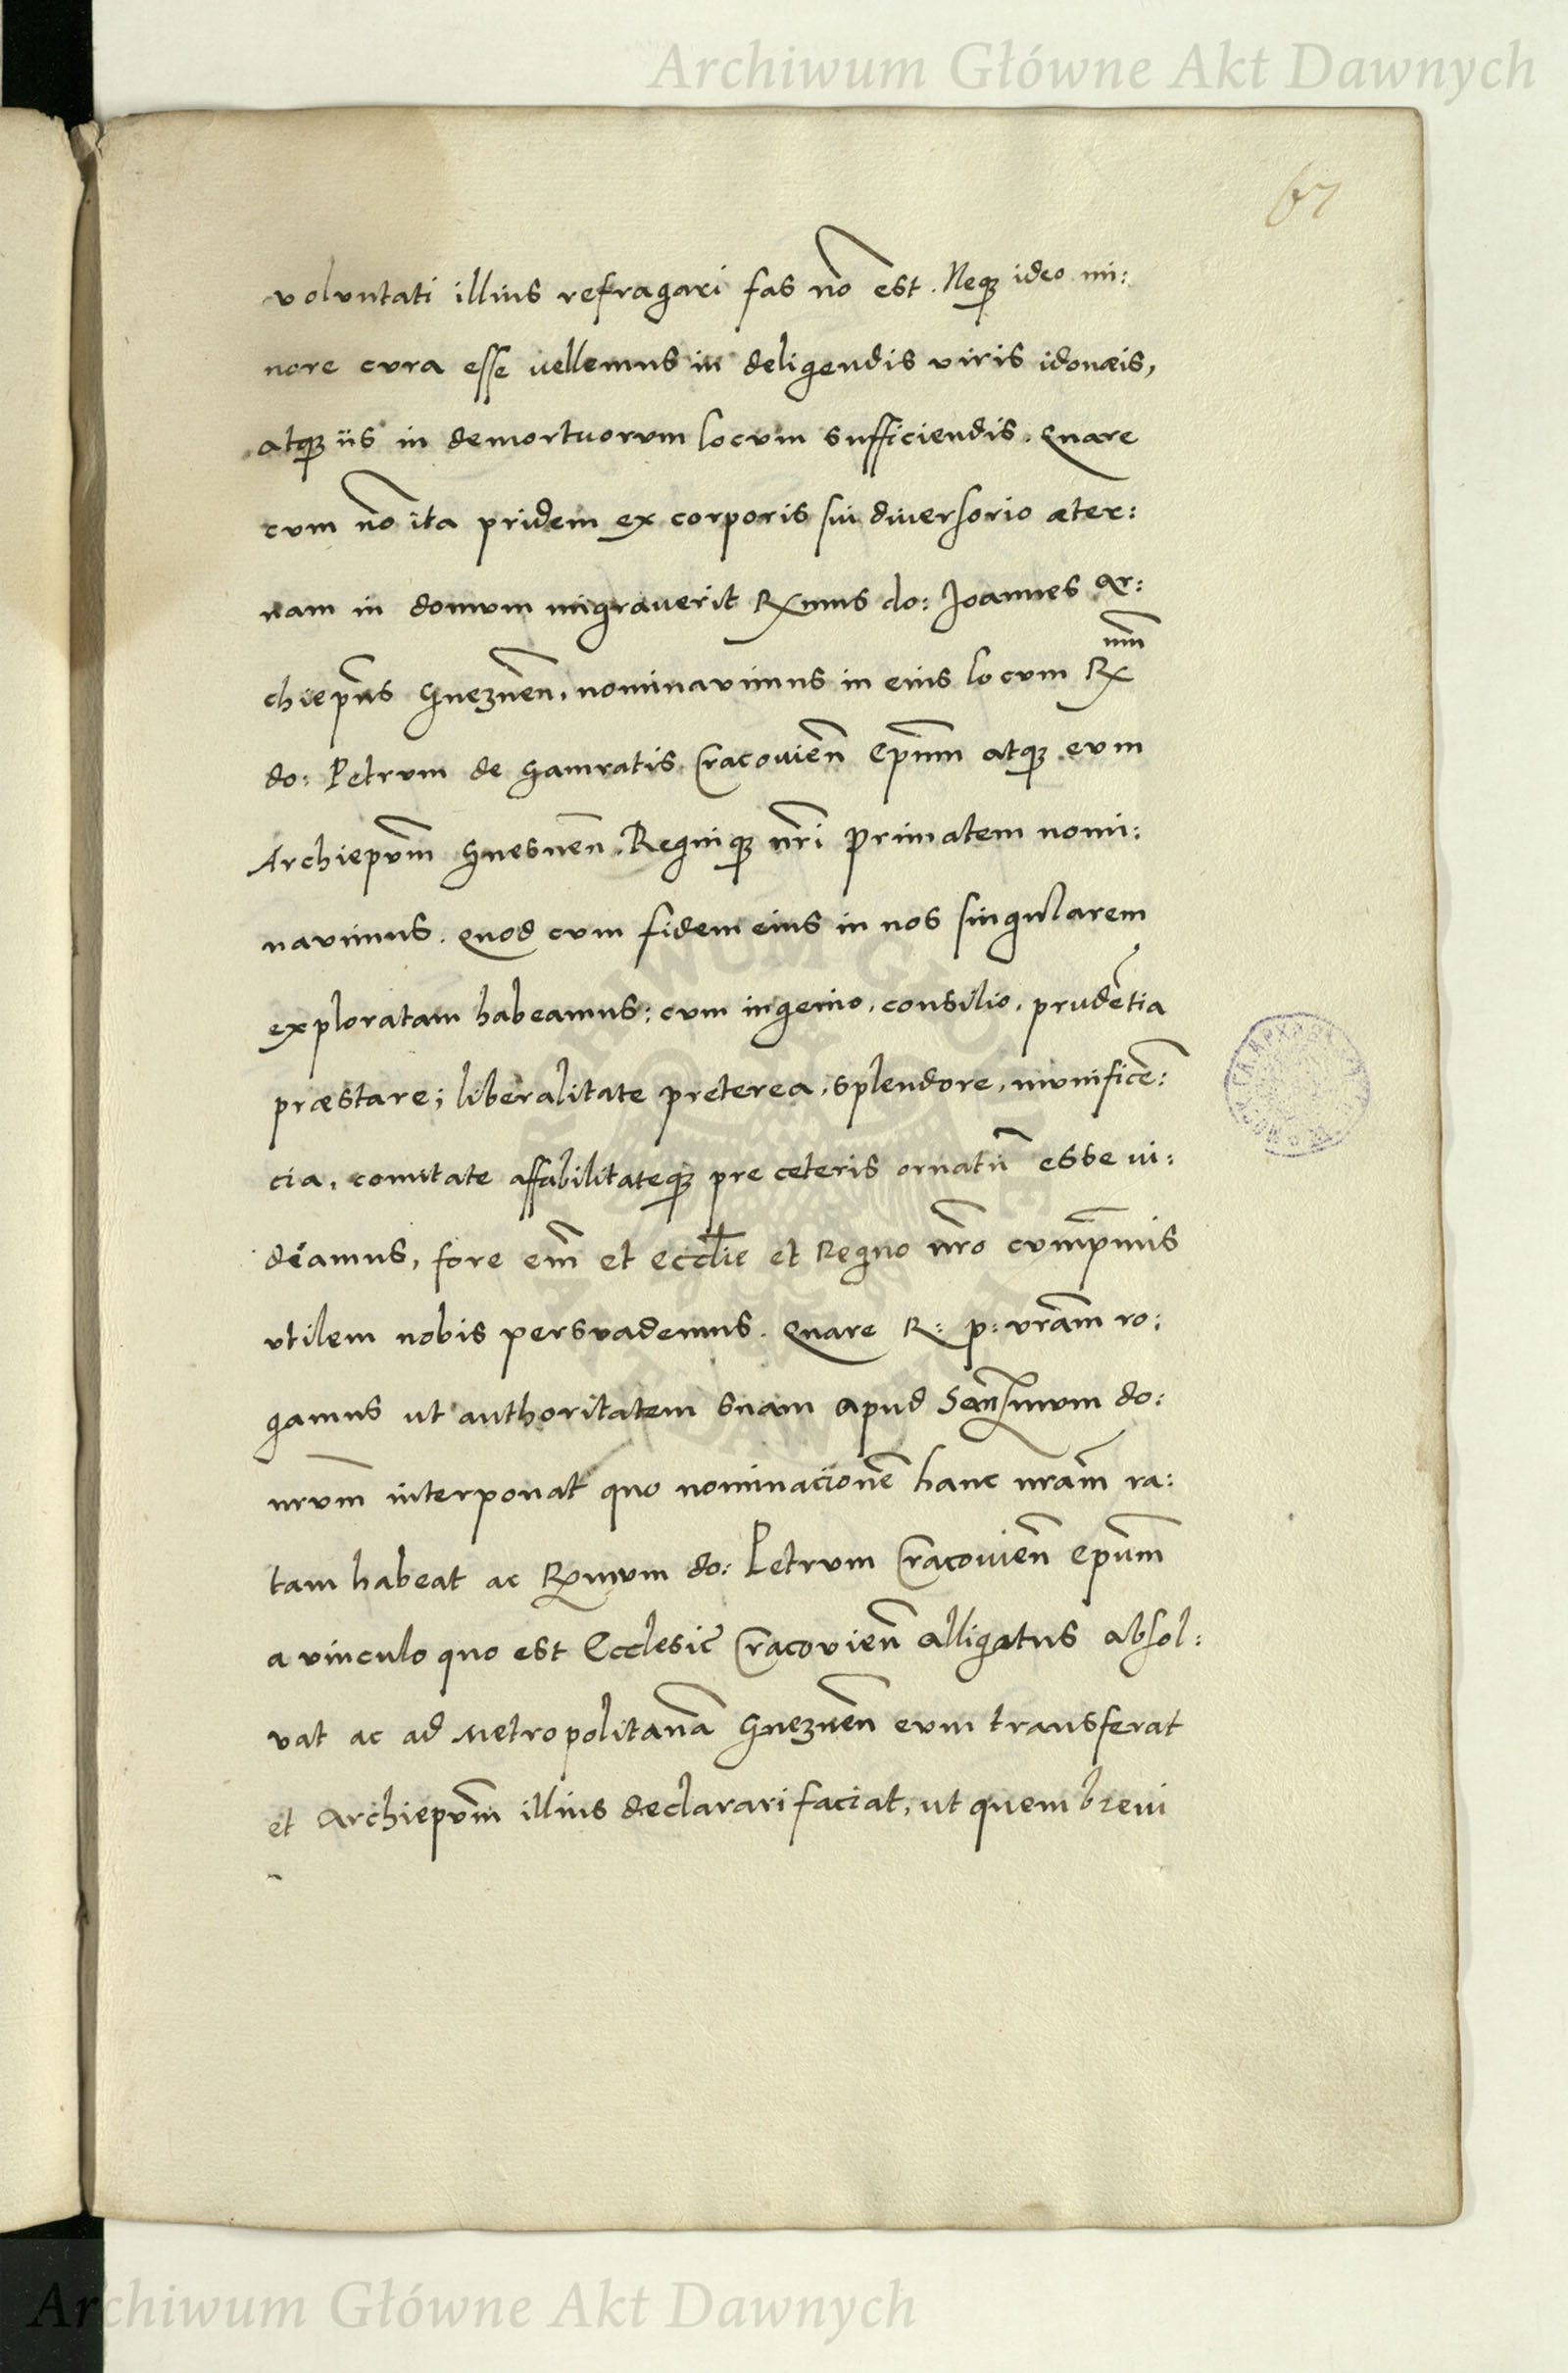 Archiwum Główne Akt Dawnych
67
voluntati illius refragari fas nō est. Neqȝ ideo mi:
nore cura esse vellemus in deligendis viris idonæis,
atqȝ iis in demortuorum locum sufficiendis. Quare
cum nō ita pridem ex corporis sui diversorio æter:
nam in domum migraverit Rx̄mus do: Joannes Ar:
chiep̄us Gnezneñ. nominavimus in eius locum Rx̄mm̄
do: Petrum de Gamratis Cracovieñ Ep̄um̄ atqȝ eum
Archiep̄um̄ Gnesneñ. Regniqȝ nr̄i Primatem nomi:
navimus. Quod cum fidem eius in nos singularem
exploratam habeamus: eum ingenio, consilio, prudētia
præstare; liberalitate preterea, splendore, munificē:
cia, comitate affabilitateqȝ pre ceteris ornatū esse vi:
deamus, fore eūm et eccl̄ie et Regno nr̄o cump̄mis
utilem nobis persuademus. Quare R: p: vr̄am ro:
gamus ut authoritatem suam apud Sanc̄simum do:
nr̄um interponat quo nominacionē hanc nr̄am ra:
tam habeat ac Rx̄mum do: Petrum Cracovieñ ep̄um̄
a vinculo quo est Ecclesie Cracovieñ alligatus absol:
vat ac ad Metropolitanā Gnezneñ eum transferat
et Archiep̄um̄ illius declarari faciat, ut quem brevi
Archiwum Główne Akt Dawnych